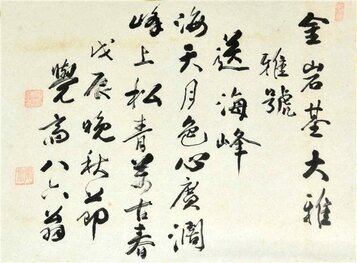 金岩基大雅
雅號
送海峰
海天月色心廣濶
峰上松青萬古春
戊辰晚秋節
覺高八六翁